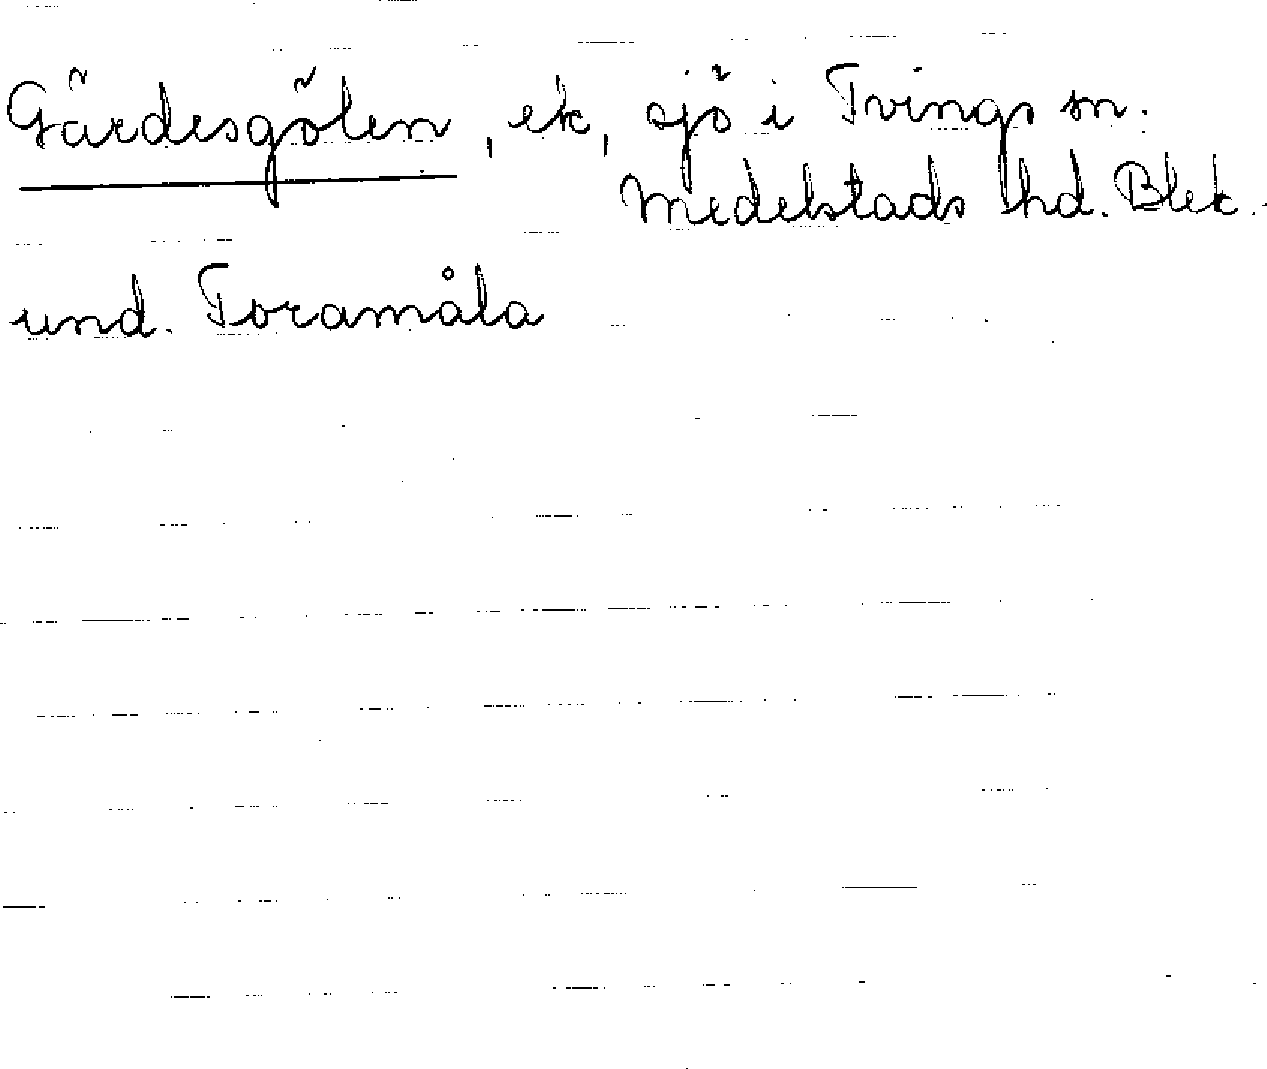 Gärdesgölen, ek, sjö i Tvings sn.
Medelstads hd. Blek.
und. Toramåla